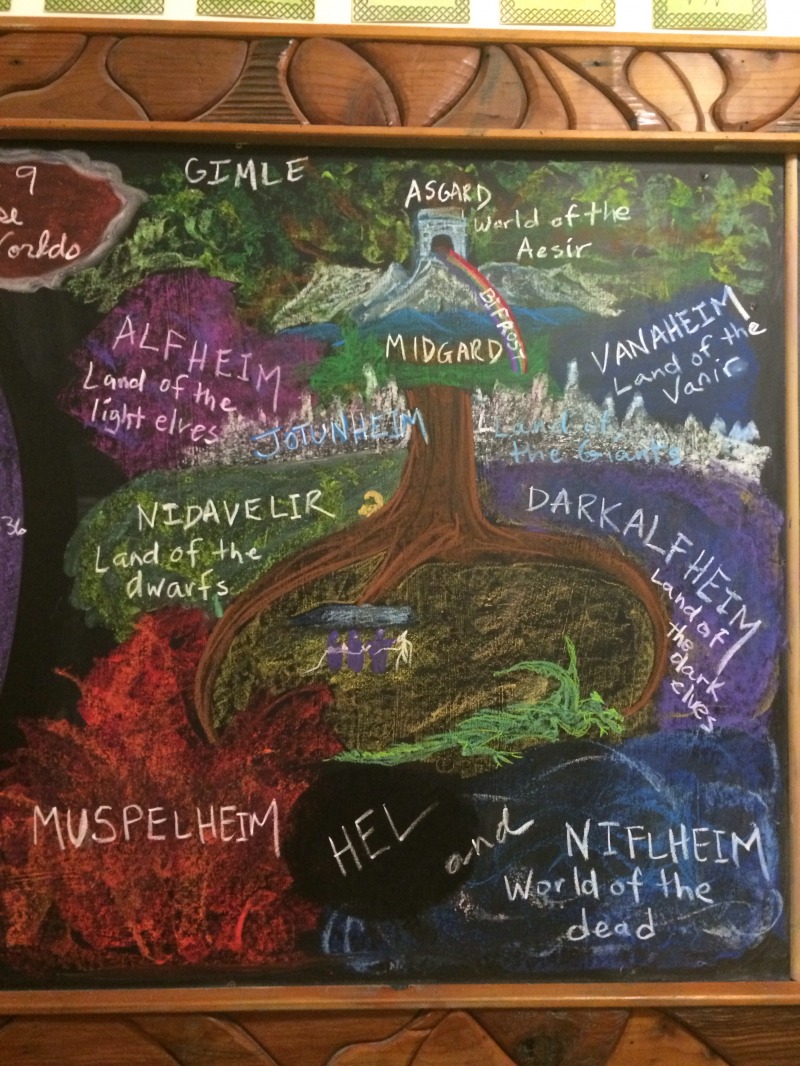 9
se
Worlds
GIMLE
ASGARD
World of the
Aesir
BIFROST
MIDGARD
ALFHEIM
Land of the
light elves
VANAHEIM
Land of the
Vanir
JOTUNHEIM
Land of
the Giants
NIDAVELIR
Land of the
dwarfs
DARKALFHEIM
Land of
the
dark
elves
36
MUSPELHEIM
HEL and NIFLHEIM
World of the
dead